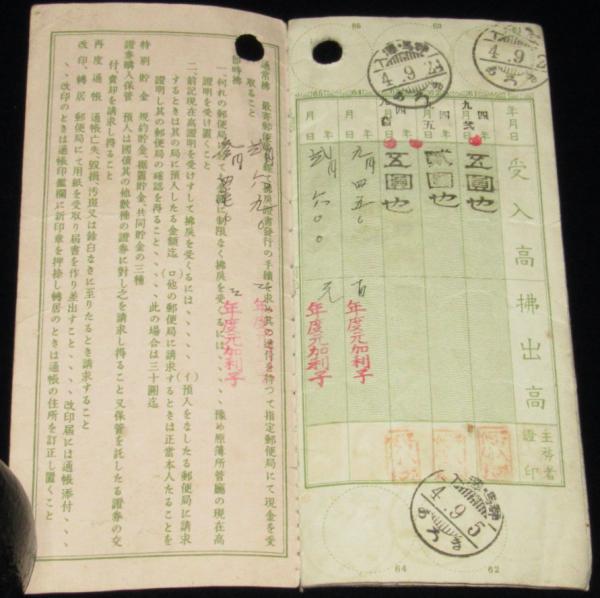 年月日
受入高
拂出高
主務者證印
四
九月
五圓也
貳圓也
五圓也
年度元加利子
年度元加利子
4.9.5
通常拂
最寄郵便局
拂戻證書發行の手續を求め其の送付を待つて指定郵便局にて現金を受
取ること
即時拂
一、何れの郵便局にても金額に制限なく拂戻を受くるには、、、、、豫め原簿所管廳の現在高
證明を受け置くこと
二、前記現在高證明を受けずして拂戻を受くるには、、、、(イ)預入をなしたる郵便局に請求
するときは其の局に預入したる金額迄(ロ)他の郵便局に請求するときは正當本人たることを
證明し其の郵便局の確認を得ること、、、、此の場合は三十圓迄
年度元加利子
年度元加利子
特別貯金 規約貯金、据置貯金、共同貯金の三種
證券購入保管 預人は國債其の他數種の證券に對し之を請求し得ること又保管を託したる證券の交
付、賣却を請求し得ること
再度通帳 通帳亡失、毀損、汚斑又は餘白なきに至りたるとき請求すること
改印、轉居 郵便局にて用紙を受取り屆書を作り差出すこと、、、、改印屆には通帳添付、、、
、、、改印のときは通帳印鑑欄に新印章を押捺し轉居のときは通帳の住所を訂正し置くこと
64
62